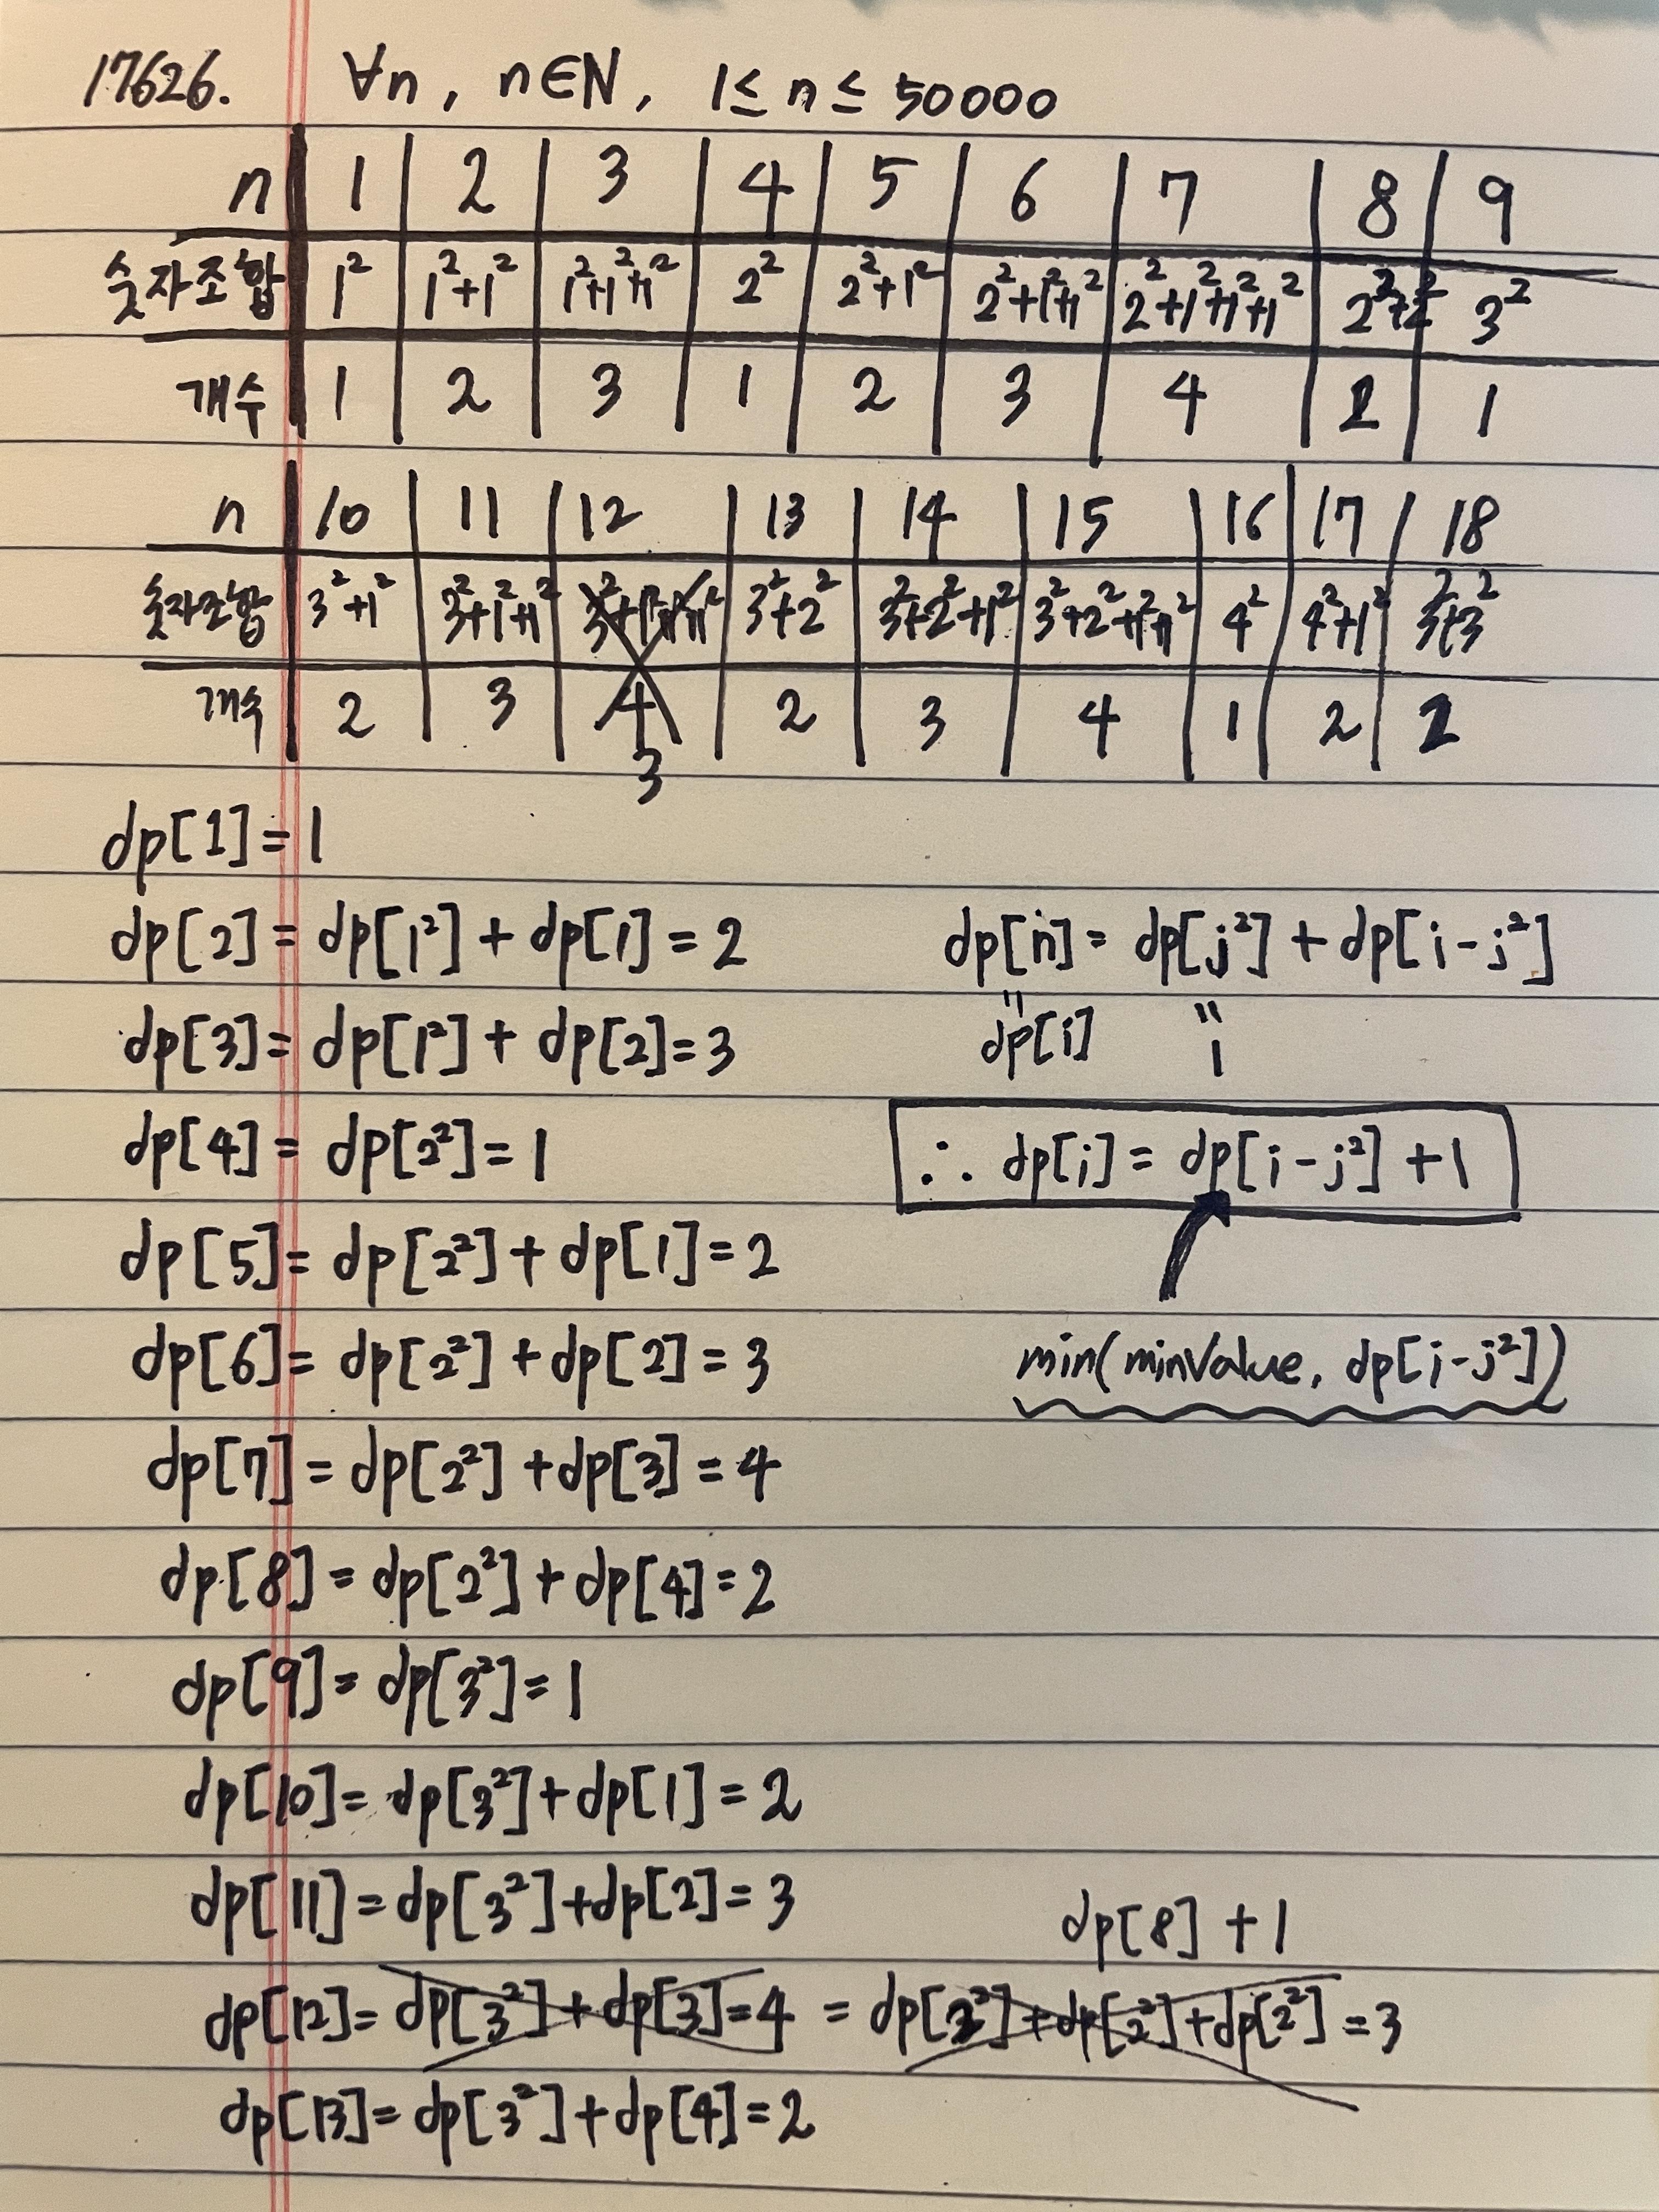 17626. ∀n, n∈N, 1≤ n ≤ 50000
n 1 2 3 4 5 6 7 8 9
숫자조합 1² 1²+1² 1²+1²+1² 2² 2²+1² 2²+1²+1² 2²+1²+1²+1² 2²+2² 3²
개수 1 2 3 1 2 3 4 2 1
n 10 11 12 13 14 15 16 17 18
숫자조합 3²+1² 3²+1²+1² 3²+1²+1²+1² 3²+2² 3²+2²+1² 3²+2²+1²+1² 4² 4²+1² 3²+3²
개수 2 3 4 2 3 4 1 2 2
3
dp[1]=1
dp[2]= dp[1²] + dp[1] = 2
dp[3]= dp[1²] + dp[2]=3
dp[4]= dp[2²]=1
dp[5]= dp[2²] + dp[1]=2
dp[6]= dp[2²] + dp[2] = 3
dp[7]= dp[2²] + dp[3] = 4
dp[8]= dp[2²] + dp[4]=2
dp[9]= dp[3²]=1
dp[10]= dp[3²]+dp[1]=2
dp[11]=dp[3²]+dp[2]=3
dp[8] +1
dp[12]= dp[3²]+dp[3]=4 = dp[2²]+dp[2²]+dp[2²]=3
dp[13]=dp[3²]+dp[4]=2
dp[n]= dp[j²] + dp[i-j²]
" "
dp[i] 1
∴ dp[i]= dp[i-j²] +1
min(minValue, dp[i-j²])